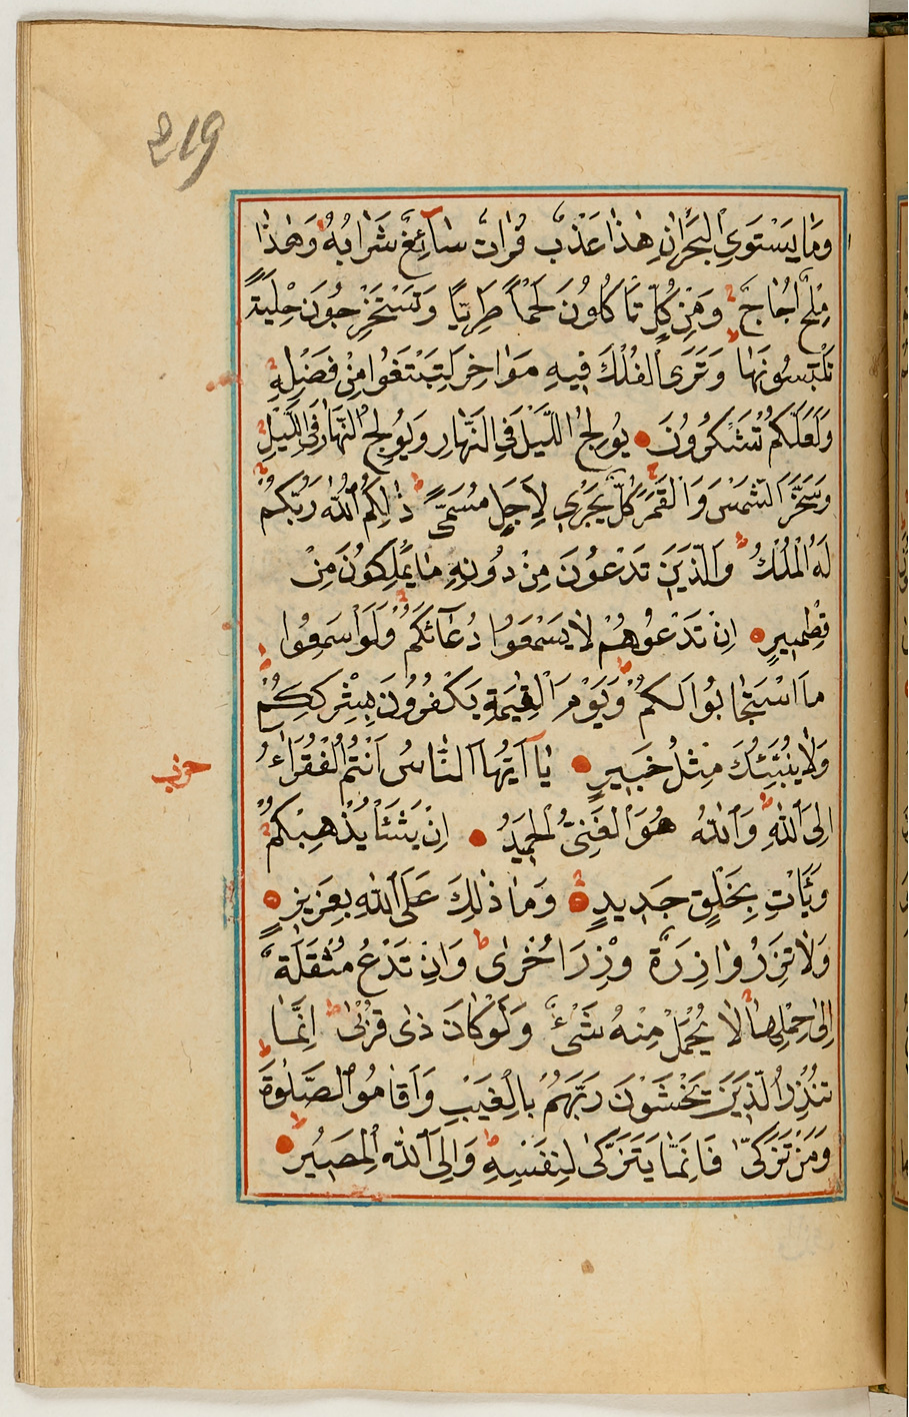 219
وَمَا يَسْتَوِي الْبَحْرَانِ هٰذَا عَذْبٌ فُرَاتٌ سَآئِغٌ شَرَابُهُ وَهٰذَا
مِلْحٌ اُجَاجٌ وَمِنْ كُلٍّ تَأْكُلُونَ لَحْمًا طَرِيًّا وَتَسْتَخْرِجُونَ حِلْيَةً
تَلْبَسُونَهَا وَتَرَى الْفُلْكَ فِيهِ مَوَاخِرَ لِتَبْتَغُوا مِنْ فَضْلِهِ
وَلَعَلَّكُمْ تَشْكُرُونَ يُولِجُ اللَّيْلَ فِي النَّهَارِ وَيُولِجُ النَّهَارَ فِي اللَّيْلِ
وَسَخَّرَ الشَّمْسَ وَالْقَمَرَ كُلٌّ يَجْرِي لِاَجَلٍ مُسَمًّى ذٰلِكُمُ اللّٰهُ رَبُّكُمْ
لَهُ الْمُلْكُ وَالَّذِينَ تَدْعُونَ مِنْ دُونِهِ مَا يَمْلِكُونَ مِنْ
قِطْمِيرٍ اِنْ تَدْعُوهُمْ لَا يَسْمَعُوا دُعَآئَكُمْ وَلَوْ سَمِعُوا
مَا اسْتَجَابُوا لَكُمْ وَيَوْمَ الْقِيٰمَةِ يَكْفُرُونَ بِشِرْكِكُمْ
وَلَا يُنَبِّئُكَ مِثْلُ خَبِيرٍ يَآ اَيُّهَا النَّاسُ اَنْتُمُ الْفُقَرَاءُ
حزب
اِلَى اللّٰهِ وَاللّٰهُ هُوَ الْغَنِيُّ الْحَمِيدُ اِنْ يَشَأْ يُذْهِبْكُمْ
وَيَأْتِ بِخَلْقٍ جَدِيدٍ وَمَا ذٰلِكَ عَلَى اللّٰهِ بِعَزِيزٍ
وَلَا تَزِرُ وَازِرَةٌ وِزْرَ اُخْرٰى وَاِنْ تَدْعُ مُثْقَلَةٌ
اِلٰى حِمْلِهَا لَا يُحْمَلْ مِنْهُ شَيْءٌ وَلَوْ كَانَ ذَا قُرْبٰى اِنَّمَا
تُنْذِرُ الَّذِينَ يَخْشَوْنَ رَبَّهُمْ بِالْغَيْبِ وَاَقَامُوا الصَّلٰوةَ
وَمَنْ تَزَكّٰى فَاِنَّمَا يَتَزَكّٰى لِنَفْسِهِ وَاِلَى اللّٰهِ الْمَصِيرُ